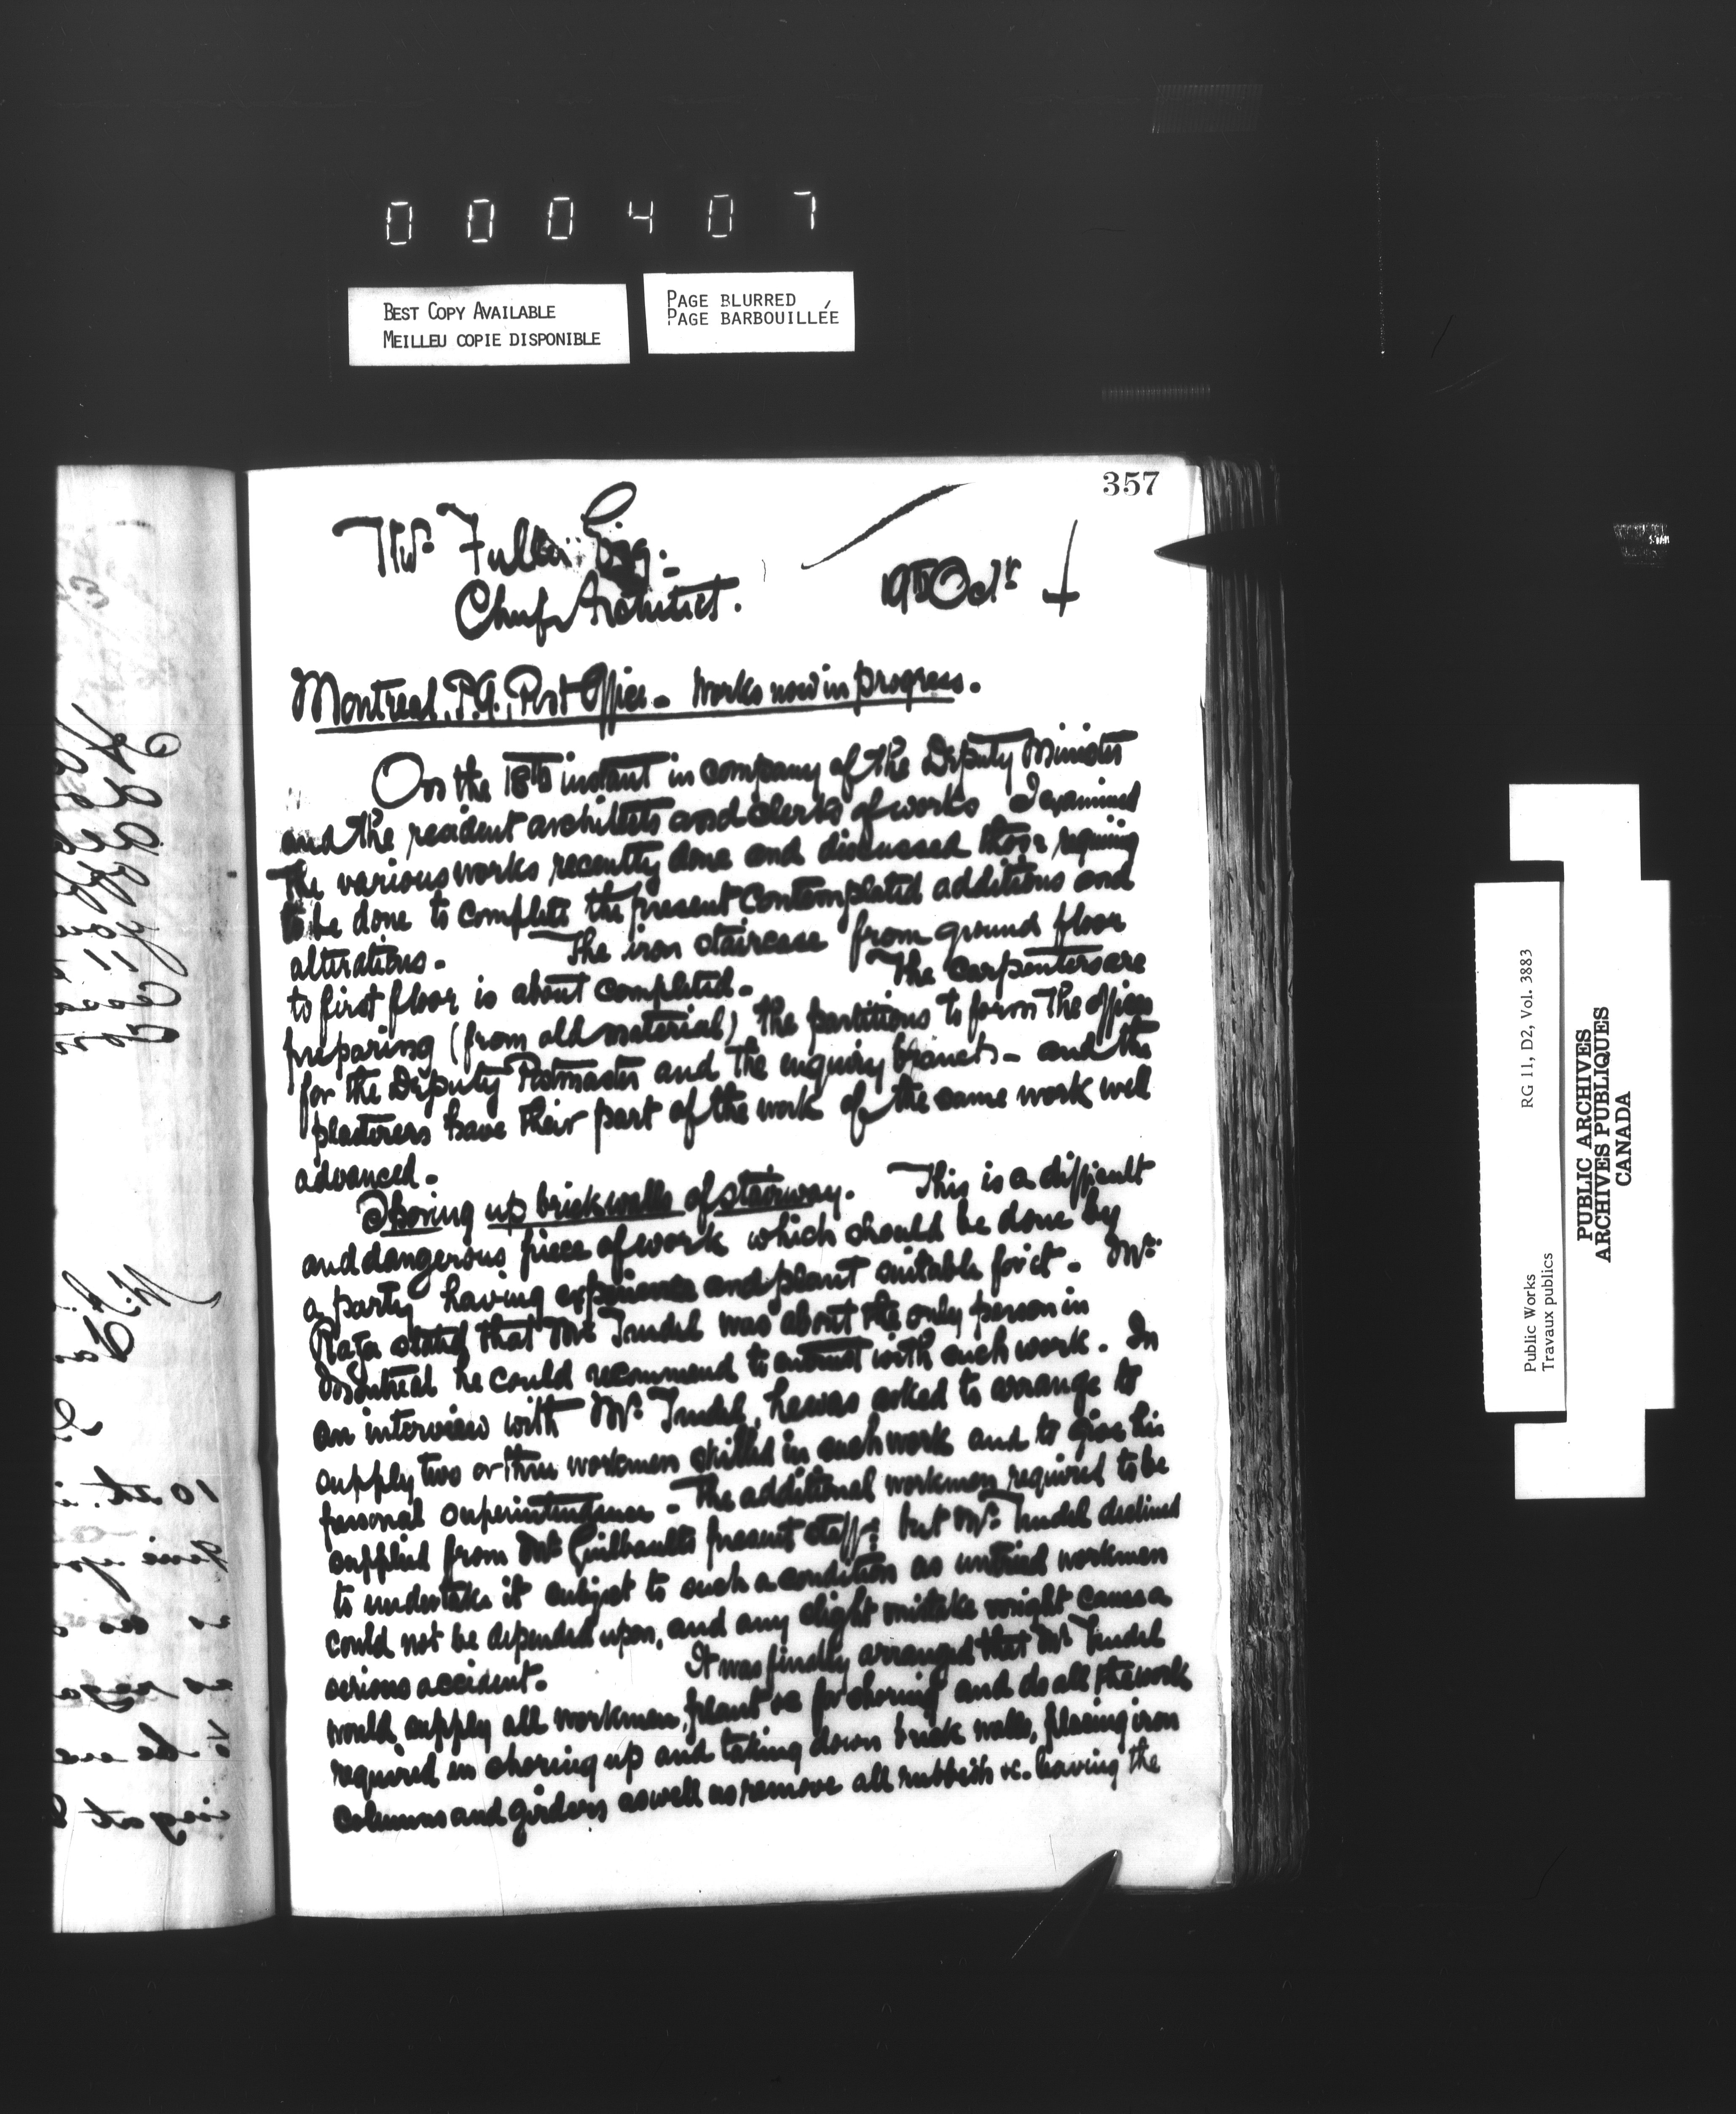 000407
BEST COPY AVAILABLE
MEILLEU COPIE DISPONIBLE
PAGE BLURRED
PAGE BARBOUILLÉE
357
Thos. Fuller Esq.
Chief Architect.
19th Octr
Montreal, P.Q. Post Office - Works now in progress.
On the 18th instant in company of the Deputy Minister
and the resident architects and clerks of works I examined
the various works recently done and discussed those requiring
to be done to complete the present contemplated additions and
alterations. - The iron staircase from ground floor
to first floor is about completed. - The carpenters are
preparing (from old material) the partitions to form the offices
for the Deputy Postmaster and the enquiry branch - and the
plasterers have their part of the work of the same work well
advanced. -
Shoring up brick walls of stairway. This is a difficult
and dangerous piece of work which should be done by
a party having experience and plant suitable for it. - Mr
Raza stated that Mr Trudel was about the only person in
Montreal he could recommend to entrust with such work. In
an interview with Mr Trudel, he was asked to arrange to
supply two or three workmen skilled in such work and to give his
personal superintendence - The additional workmen required to be
supplied from Mr Guilbault's present staff: but Mr Trudel declined
to undertake it subject to such a condition as untried workmen
could not be depended upon, and any slight mistake might cause a
serious accident. It was finally arranged that Mr Trudel
would supply all workmen, plant &c for shoring and do all the work
required in shoring up and taking down brick walls, placing iron
columns and girders as well as remove all rubbish &c. leaving the
Public Works
Travaux publics
RG 11, D2, Vol. 3883
PUBLIC ARCHIVES
ARCHIVES PUBLIQUES
CANADA